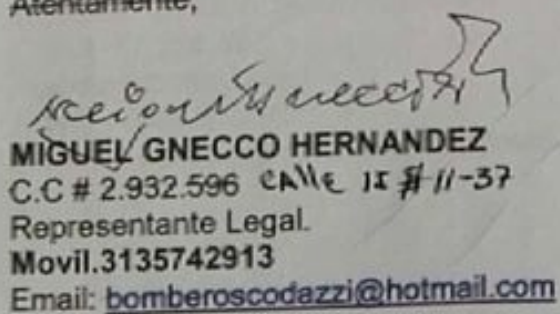 Atentamente,
MIGUEL GNECCO HERNANDEZ
C.C # 2.932.596 CAllE 15 # 11-37
Representante Legal.
Movil.3135742913
Email: bomberoscodazzi@hotmail.com